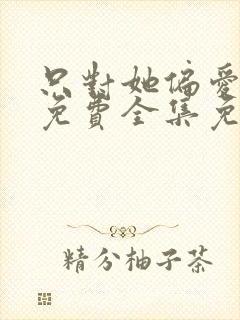 只對她偏愛
免費全集免
精分柚子茶